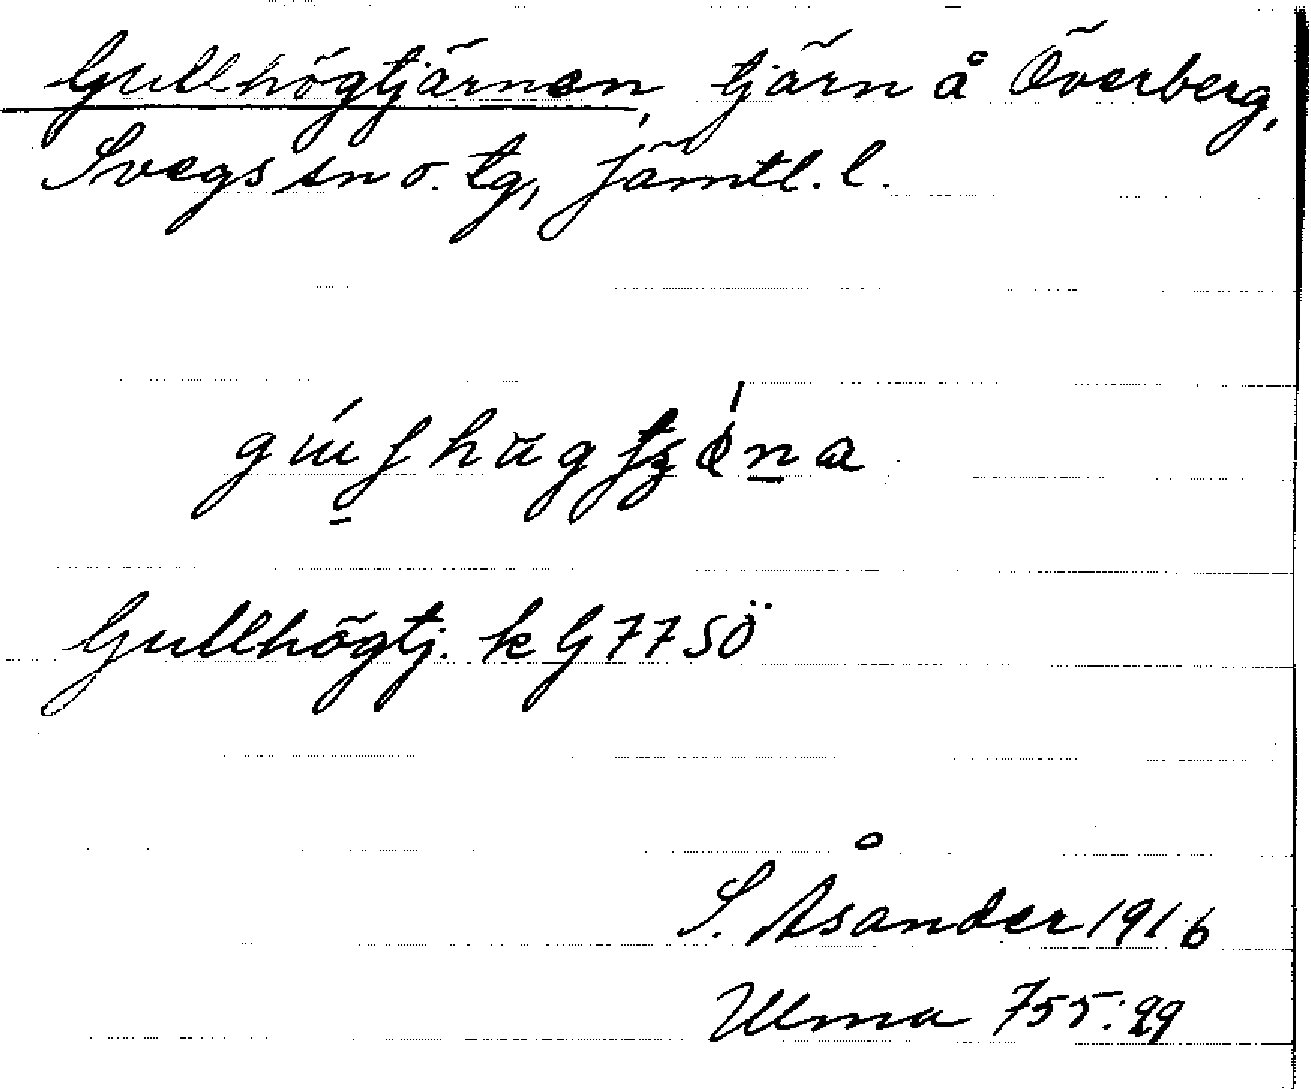 Gullhögtjärnen, tjärn å Överberg,
Svegs sn o. tg, Jämtl. l.
Gullhögtj. k G77SÖ
S. Åsander 1916
Ulma 755:99